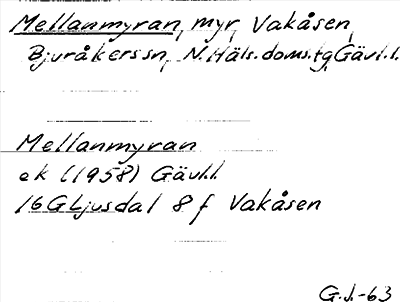 Mellanmyran, myr, Vakåsen,
Bjuråkers sn, N.Häls.doms.tg, Gävl.l.
Mellanmyran
ek (1958) Gävl.l
16G Ljusdal 8 f Vakåsen
G.J.-63